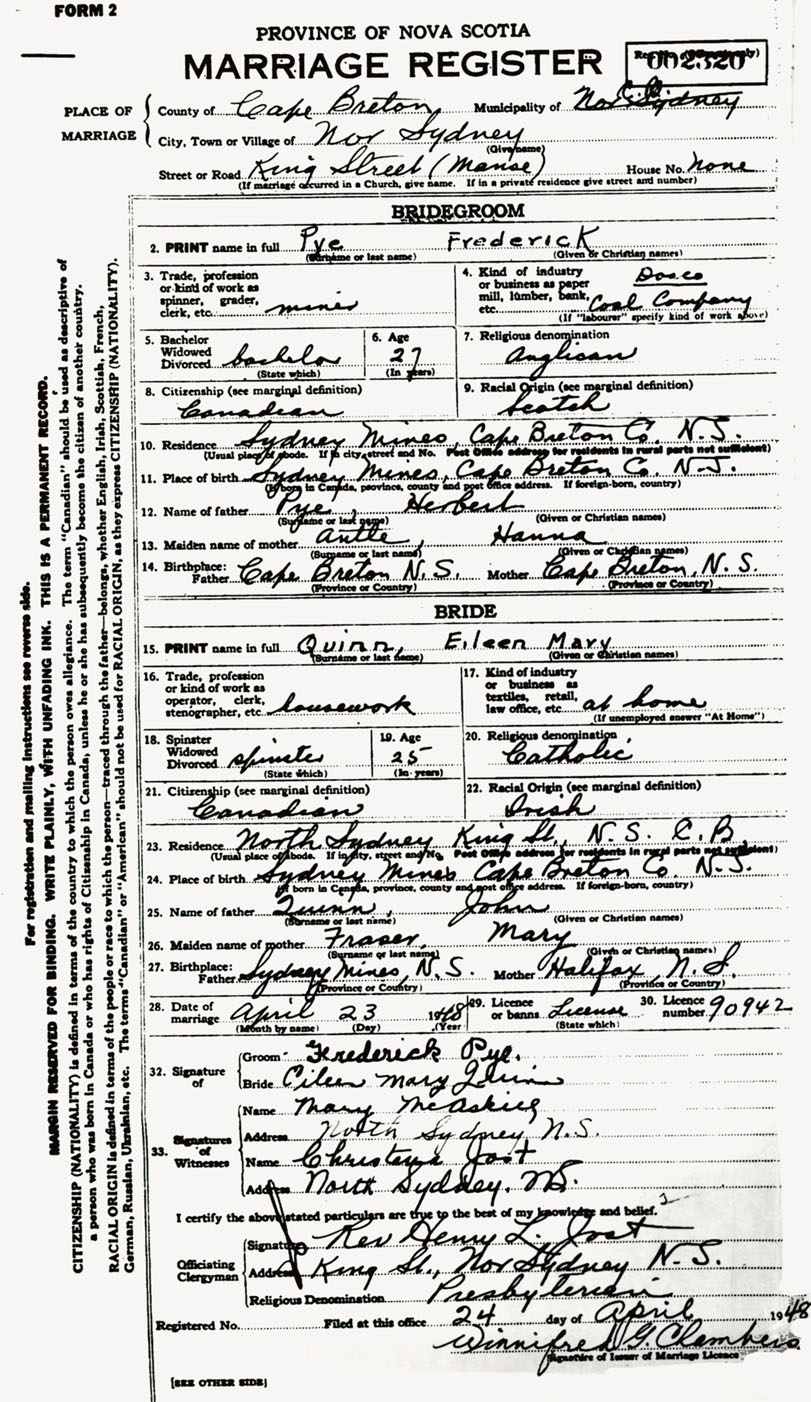 FORM 2
PROVINCE OF NOVA SCOTIA
MARRIAGE REGISTER
002320
PLACE OF MARRIAGE
County of Cape Breton Municipality of Nor Sydney
City, Town or Village of Nor Sydney
(Give name)
Street or Road King Street (Manse) House No. none
(If marriage occurred in a Church, give name. If in a private residence give street and number)
BRIDEGROOM
2. PRINT name in full Pye Frederick
(Surname or last name) (Given or Christian names)
3. Trade, profession or kind of work as spinner, grader, clerk, etc. miner
4. Kind of industry or business as paper mill, lumber, bank, etc. Dosco Coal Company
(If "labourer" specify kind of work above)
5. Bachelor Widowed Divorced bachelor
(State which)
6. Age 27
(In years)
7. Religious denomination
Anglican
8. Citizenship (see marginal definition)
Canadian
9. Racial Origin (see marginal definition)
Scotch
10. Residence Sydney Mines, Cape Breton Co. N.S.
(Usual place of abode. If in city, street and No. Post Office address for residents in rural parts not sufficient)
11. Place of birth Sydney Mines, Cape Breton Co. N.S.
(If born in Canada, province, county and post office address. If foreign-born, country)
12. Name of father Pye, Herbert
(Surname or last name) (Given or Christian names)
13. Maiden name of mother Antle, Hanna
(Surname or last name) (Given or Christian names)
14. Birthplace: Father Cape Breton N.S. Mother Cape Breton, N.S.
(Province or Country) (Province or Country)
BRIDE
15. PRINT name in full Quinn, Eileen Mary
(Surname or last name) (Given or Christian names)
16. Trade, profession or kind of work as operator, clerk, stenographer, etc. housework
17. Kind of industry or business as textiles, retail, law office, etc. at home
(If unemployed answer "At Home")
18. Spinster Widowed Divorced spinster
(State which)
19. Age 25
(In years)
20. Religious denomination
Catholic
21. Citizenship (see marginal definition)
Canadian
22. Racial Origin (see marginal definition)
Irish
23. Residence North Sydney King St., N.S. C.B
(Usual place of abode. If in city, street and No. Post Office address for residents in rural parts not sufficient)
24. Place of birth Sydney Mines Cape Breton Co. N.S.
(If born in Canada, province, county and post office address. If foreign-born, country)
25. Name of father Quinn, John
(Surname or last name) (Given or Christian names)
26. Maiden name of mother Fraser, Mary
(Surname or last name) (Given or Christian names)
27. Birthplace: Father Sydney Mines, N.S. Mother Halifax, N.S.
(Province or Country) (Province or Country)
28. Date of marriage April 23 1948
(Month by name) (Day) (Year)
29. Licence or banns License
(State which)
30. Licence number 90942
32. Signature of
Groom Frederick Pye.
Bride Eileen Mary Quinn
33. Signatures of Witnesses
Name Mary McAskill
Address North Sydney, N.S.
Name Christena Jost
Address North Sydney, N.S.
I certify the above stated particulars are true to the best of my knowledge and belief.
Officiating Clergyman
Signature Rev Henry L. Jost
Address King St., Nor Sydney N.S.
Religious Denomination Presbyterian
Registered No. Filed at this office 24 day of April 1948
Winnifred G. Chambers
Signature of Issuer of Marriage Licence
[SEE OTHER SIDE]
For registration and mailing instructions see reverse side.
MARGIN RESERVED FOR BINDING. WRITE PLAINLY, WITH UNFADING INK. THIS IS A PERMANENT RECORD.
CITIZENSHIP (NATIONALITY) is defined in terms of the country to which the person owes allegiance. The term "Canadian" should be used as descriptive of
a person who was born in Canada or who has rights of Citizenship in Canada, unless he or she has subsequently become the citizen of another country.
RACIAL ORIGIN is defined in terms of the people or race to which the person—traced through the father—belongs, whether English, Irish, Scottish, French,
German, Russian, Ukrainian, etc. The terms "Canadian" or "American" should not be used for RACIAL ORIGIN, as they express CITIZENSHIP (NATIONALITY).